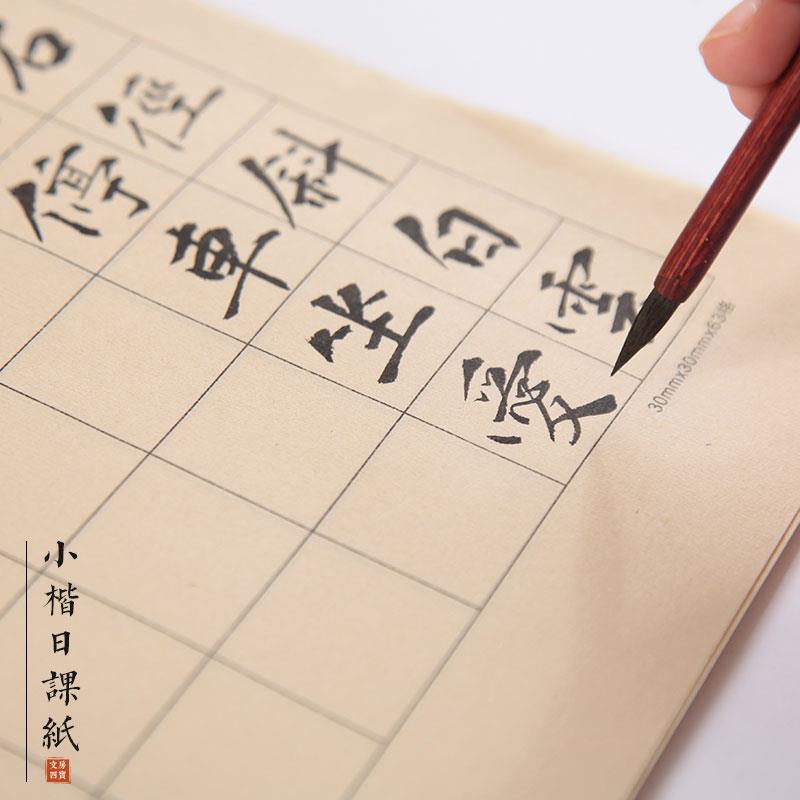 石徑斜白雲
停車坐愛
30mmx30mmx63格
小楷日課紙
文房
四寶